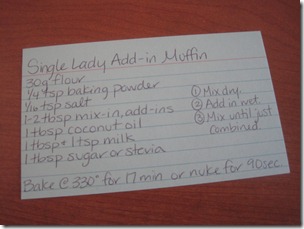 Single Lady Add-in Muffin
30g flour
1/4 tsp baking powder
1/16 tsp salt
1-2 tbsp mix-in, add-ins
1 tbsp coconut oil
1 tbsp + 1 tsp milk
1 tbsp sugar or stevia
① Mix dry.
② Add in wet.
③ Mix until just
combined.
Bake @ 330° for 17 min or nuke for 90 sec.